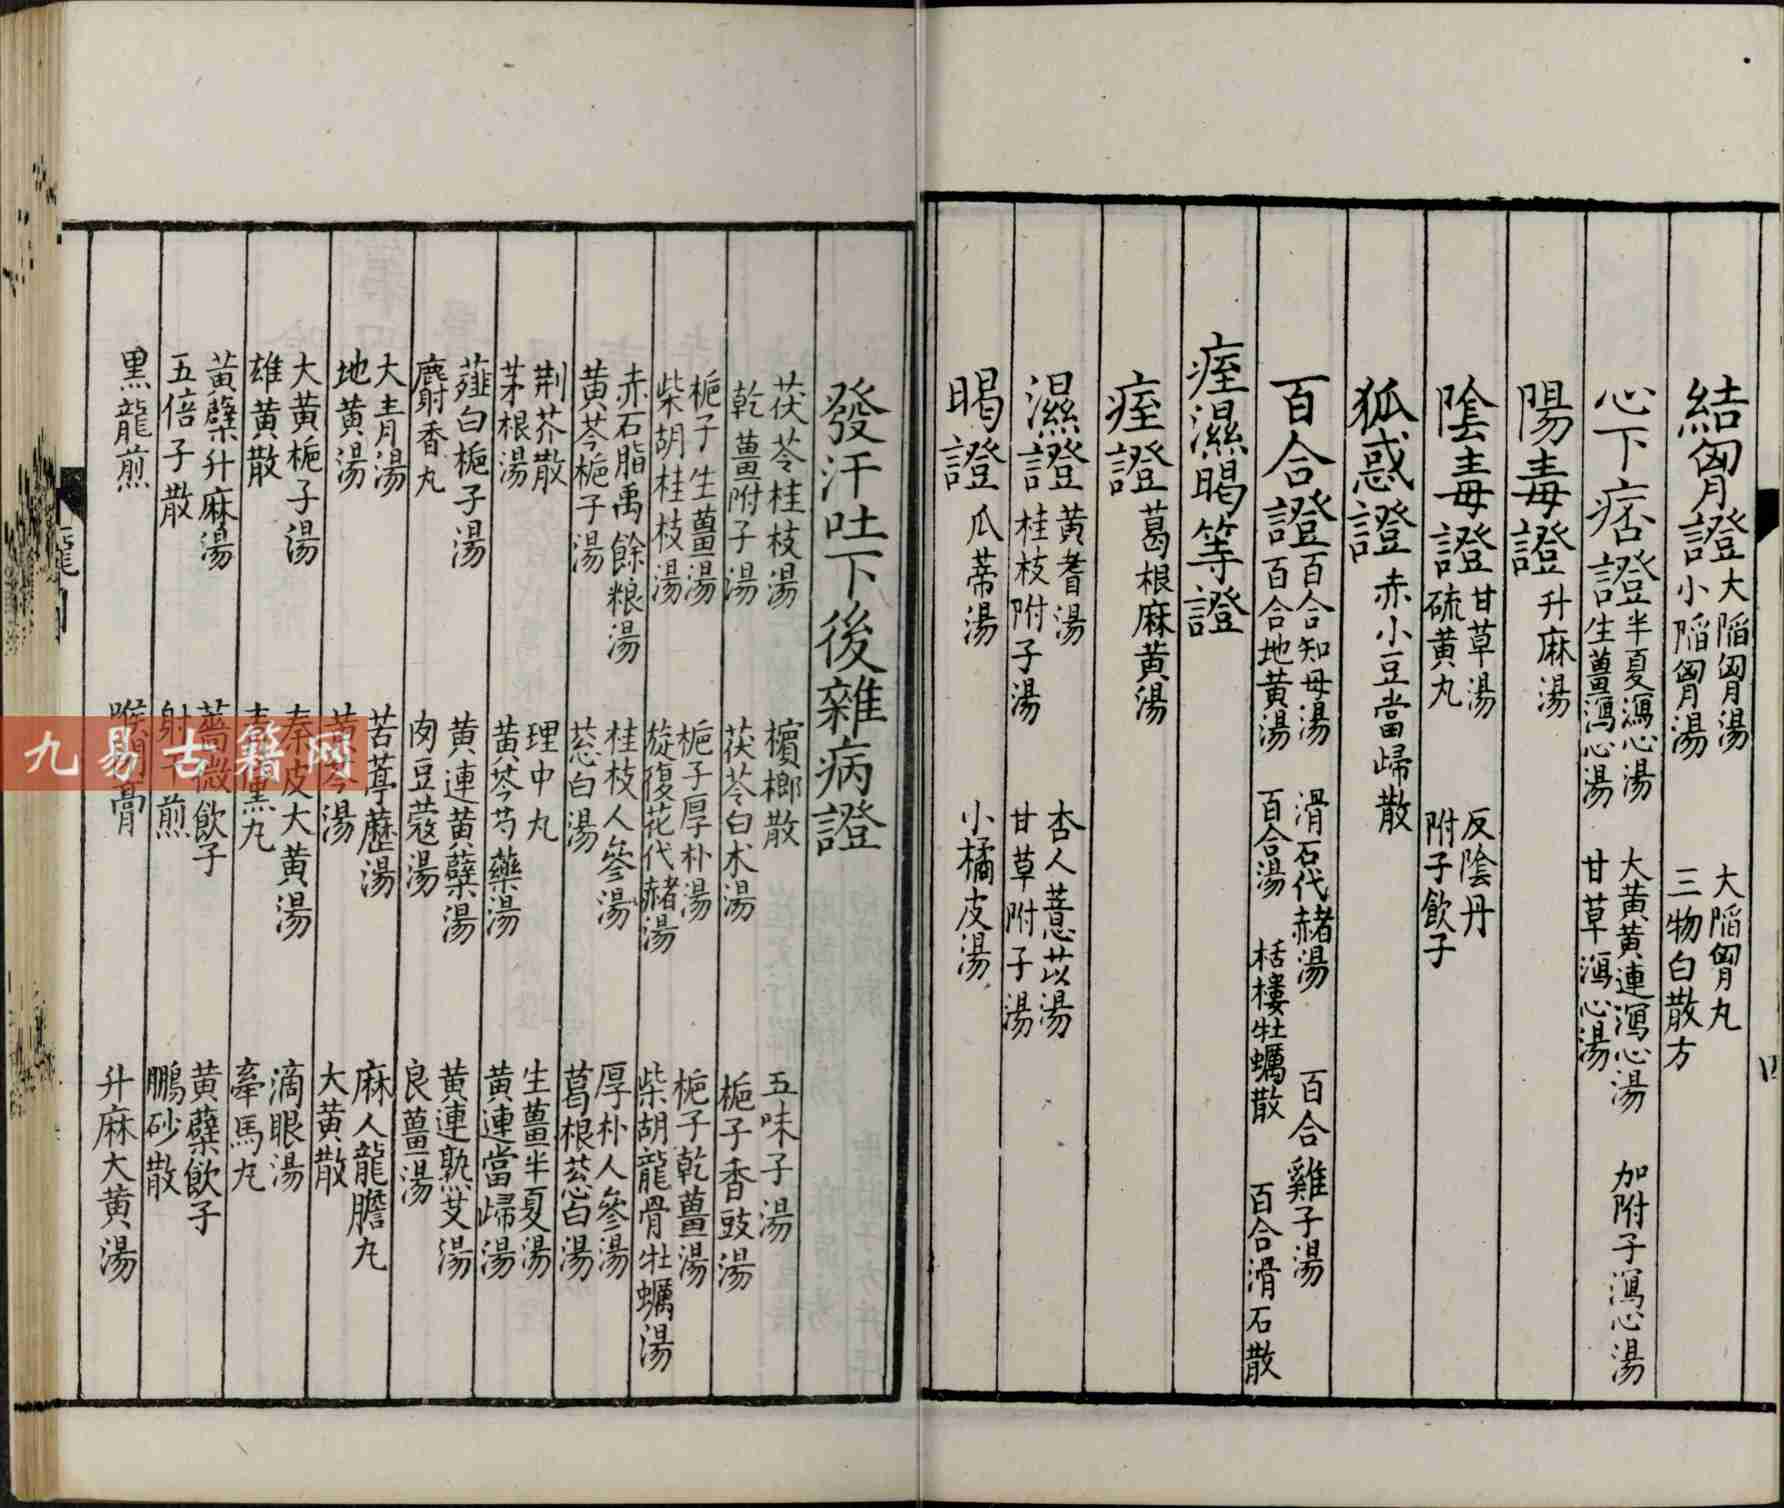 結胷證 大陷胷湯 大陷胷丸
小陷胷湯 三物白散方
心下痞證 半夏瀉心湯 大黄黄連瀉心湯 加附子瀉心湯
生薑瀉心湯 甘草瀉心湯
陽毒證 升麻湯
陰毒證 甘草湯 反陰丹
硫黄丸 附子飲子
狐惑證 赤小豆當歸散
百合證 百合知母湯 滑石代赭湯 百合雞子湯
百合地黄湯 百合湯 栝樓牡蠣散 百合滑石散
痓濕暍等證
痓證 葛根麻黄湯
濕證 黄耆湯 杏人薏苡湯
桂枝附子湯 甘草附子湯
暍證 瓜蒂湯 小橘皮湯
發汗吐下後雜病證
茯苓桂枝湯 檳榔散 五味子湯
乾薑附子湯 茯苓白术湯 梔子香豉湯
梔子生薑湯 梔子厚朴湯 梔子乾薑湯
柴胡桂枝湯 旋復花代赭湯 柴胡龍骨牡蠣湯
赤石脂禹餘粮湯 桂枝人參湯 厚朴人參湯
黄芩梔子湯 葱白湯 葛根葱白湯
荆芥散 理中丸 生薑半夏湯
茅根湯 黄芩芍藥湯 黄連當歸湯
薤白梔子湯 黄連黄蘗湯 黄連熟艾湯
麝香丸 肉豆蔻湯 良薑湯
大青湯 苦葶藶湯 麻人龍膽丸
地黄湯 湯 大黄散
大黄梔子湯 秦皮大黄湯 滴眼湯
雄黄散 熏丸 牽馬丸
黄蘗升麻湯 薔薇飲子 黄蘗飲子
五倍子散 射干煎 鵬砂散
黒龍煎 喉閉膏 升麻大黄湯
九易古籍网